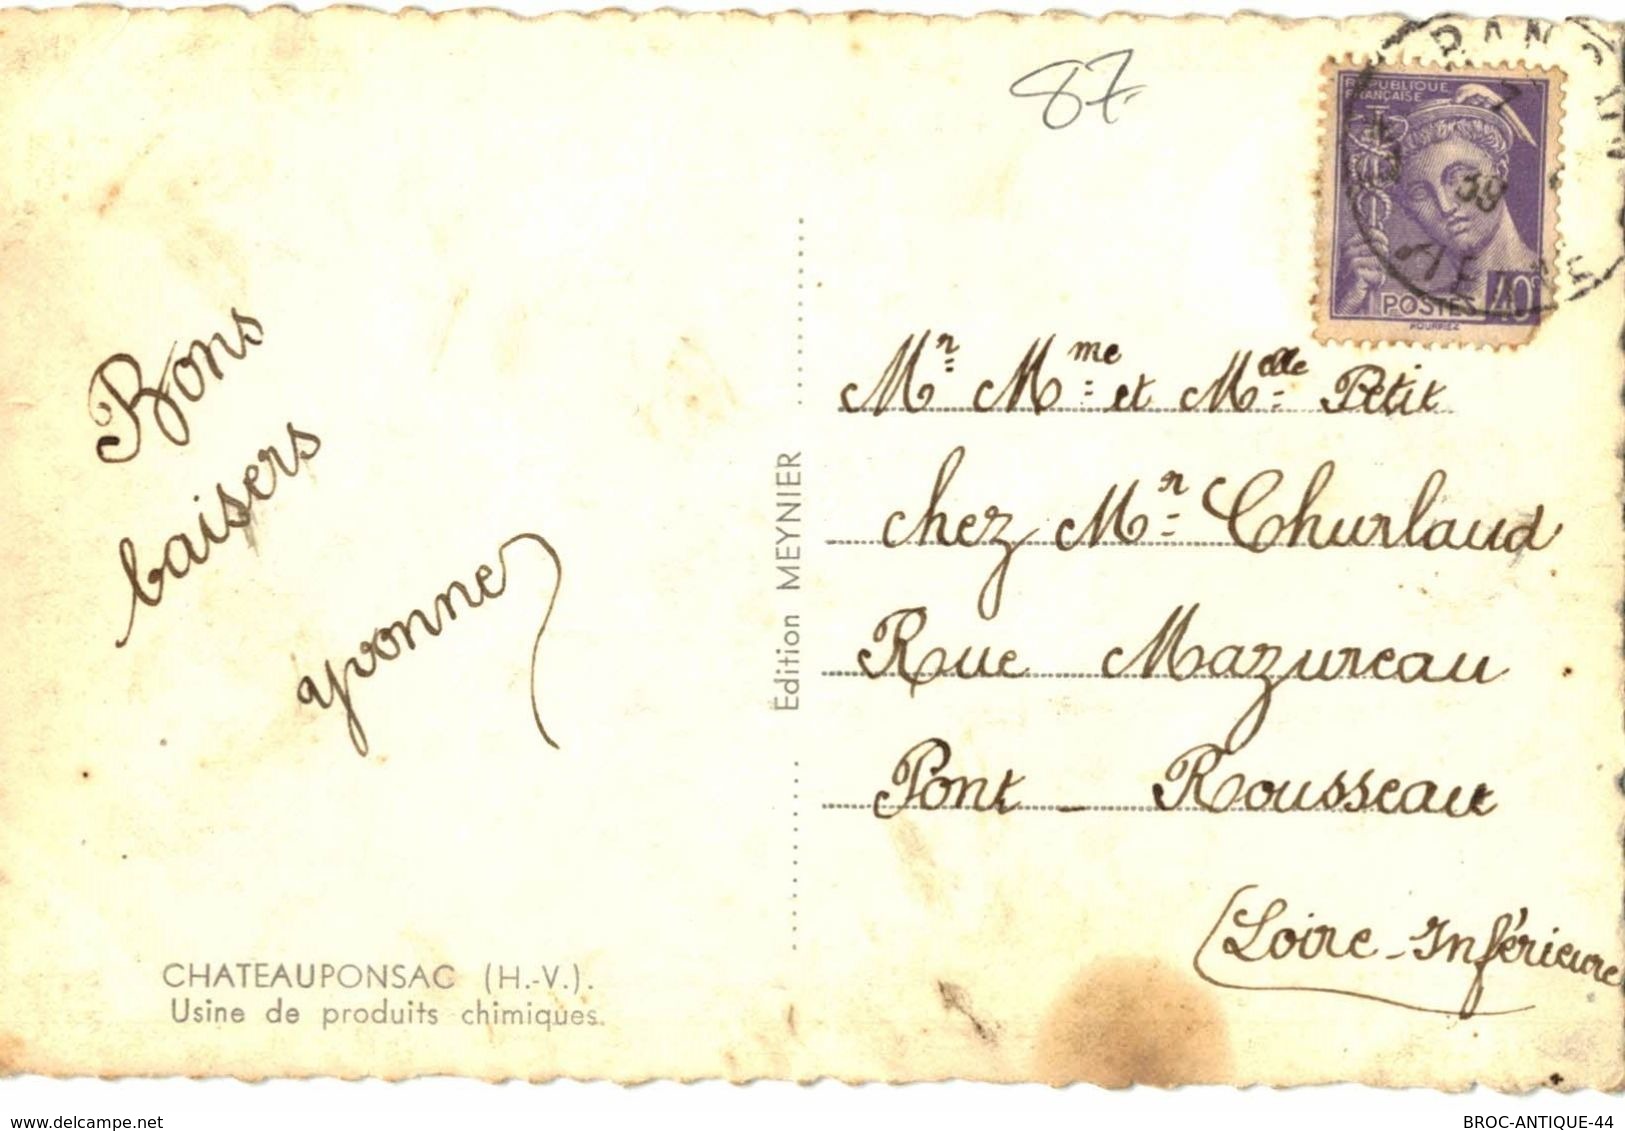 87
RÉPUBLIQUE
FRANÇAISE
39
POSTES 40c
Bons
baisers
yvonne
Edition MEYNIER
Mr Mme et Melle Petit
chez Mr Churlaud
Rue Mazureau
Pont - Rousseau
(Loire-Inférieure
CHATEAUPONSAC (H.-V.).
Usine de produits chimiques.
www.delcampe.net
BROC-ANTIQUE-44